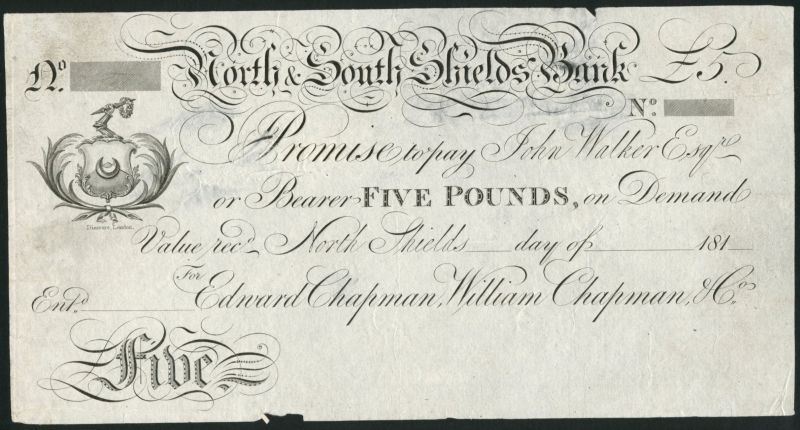 No. North & South Shields Bank £5.
No.
Promise to pay John Walker Esqre
or Bearer FIVE POUNDS, on Demand
Value recd. North Shields day of 181
For
Entd. Edward Chapman, William Chapman, & Co.
Five